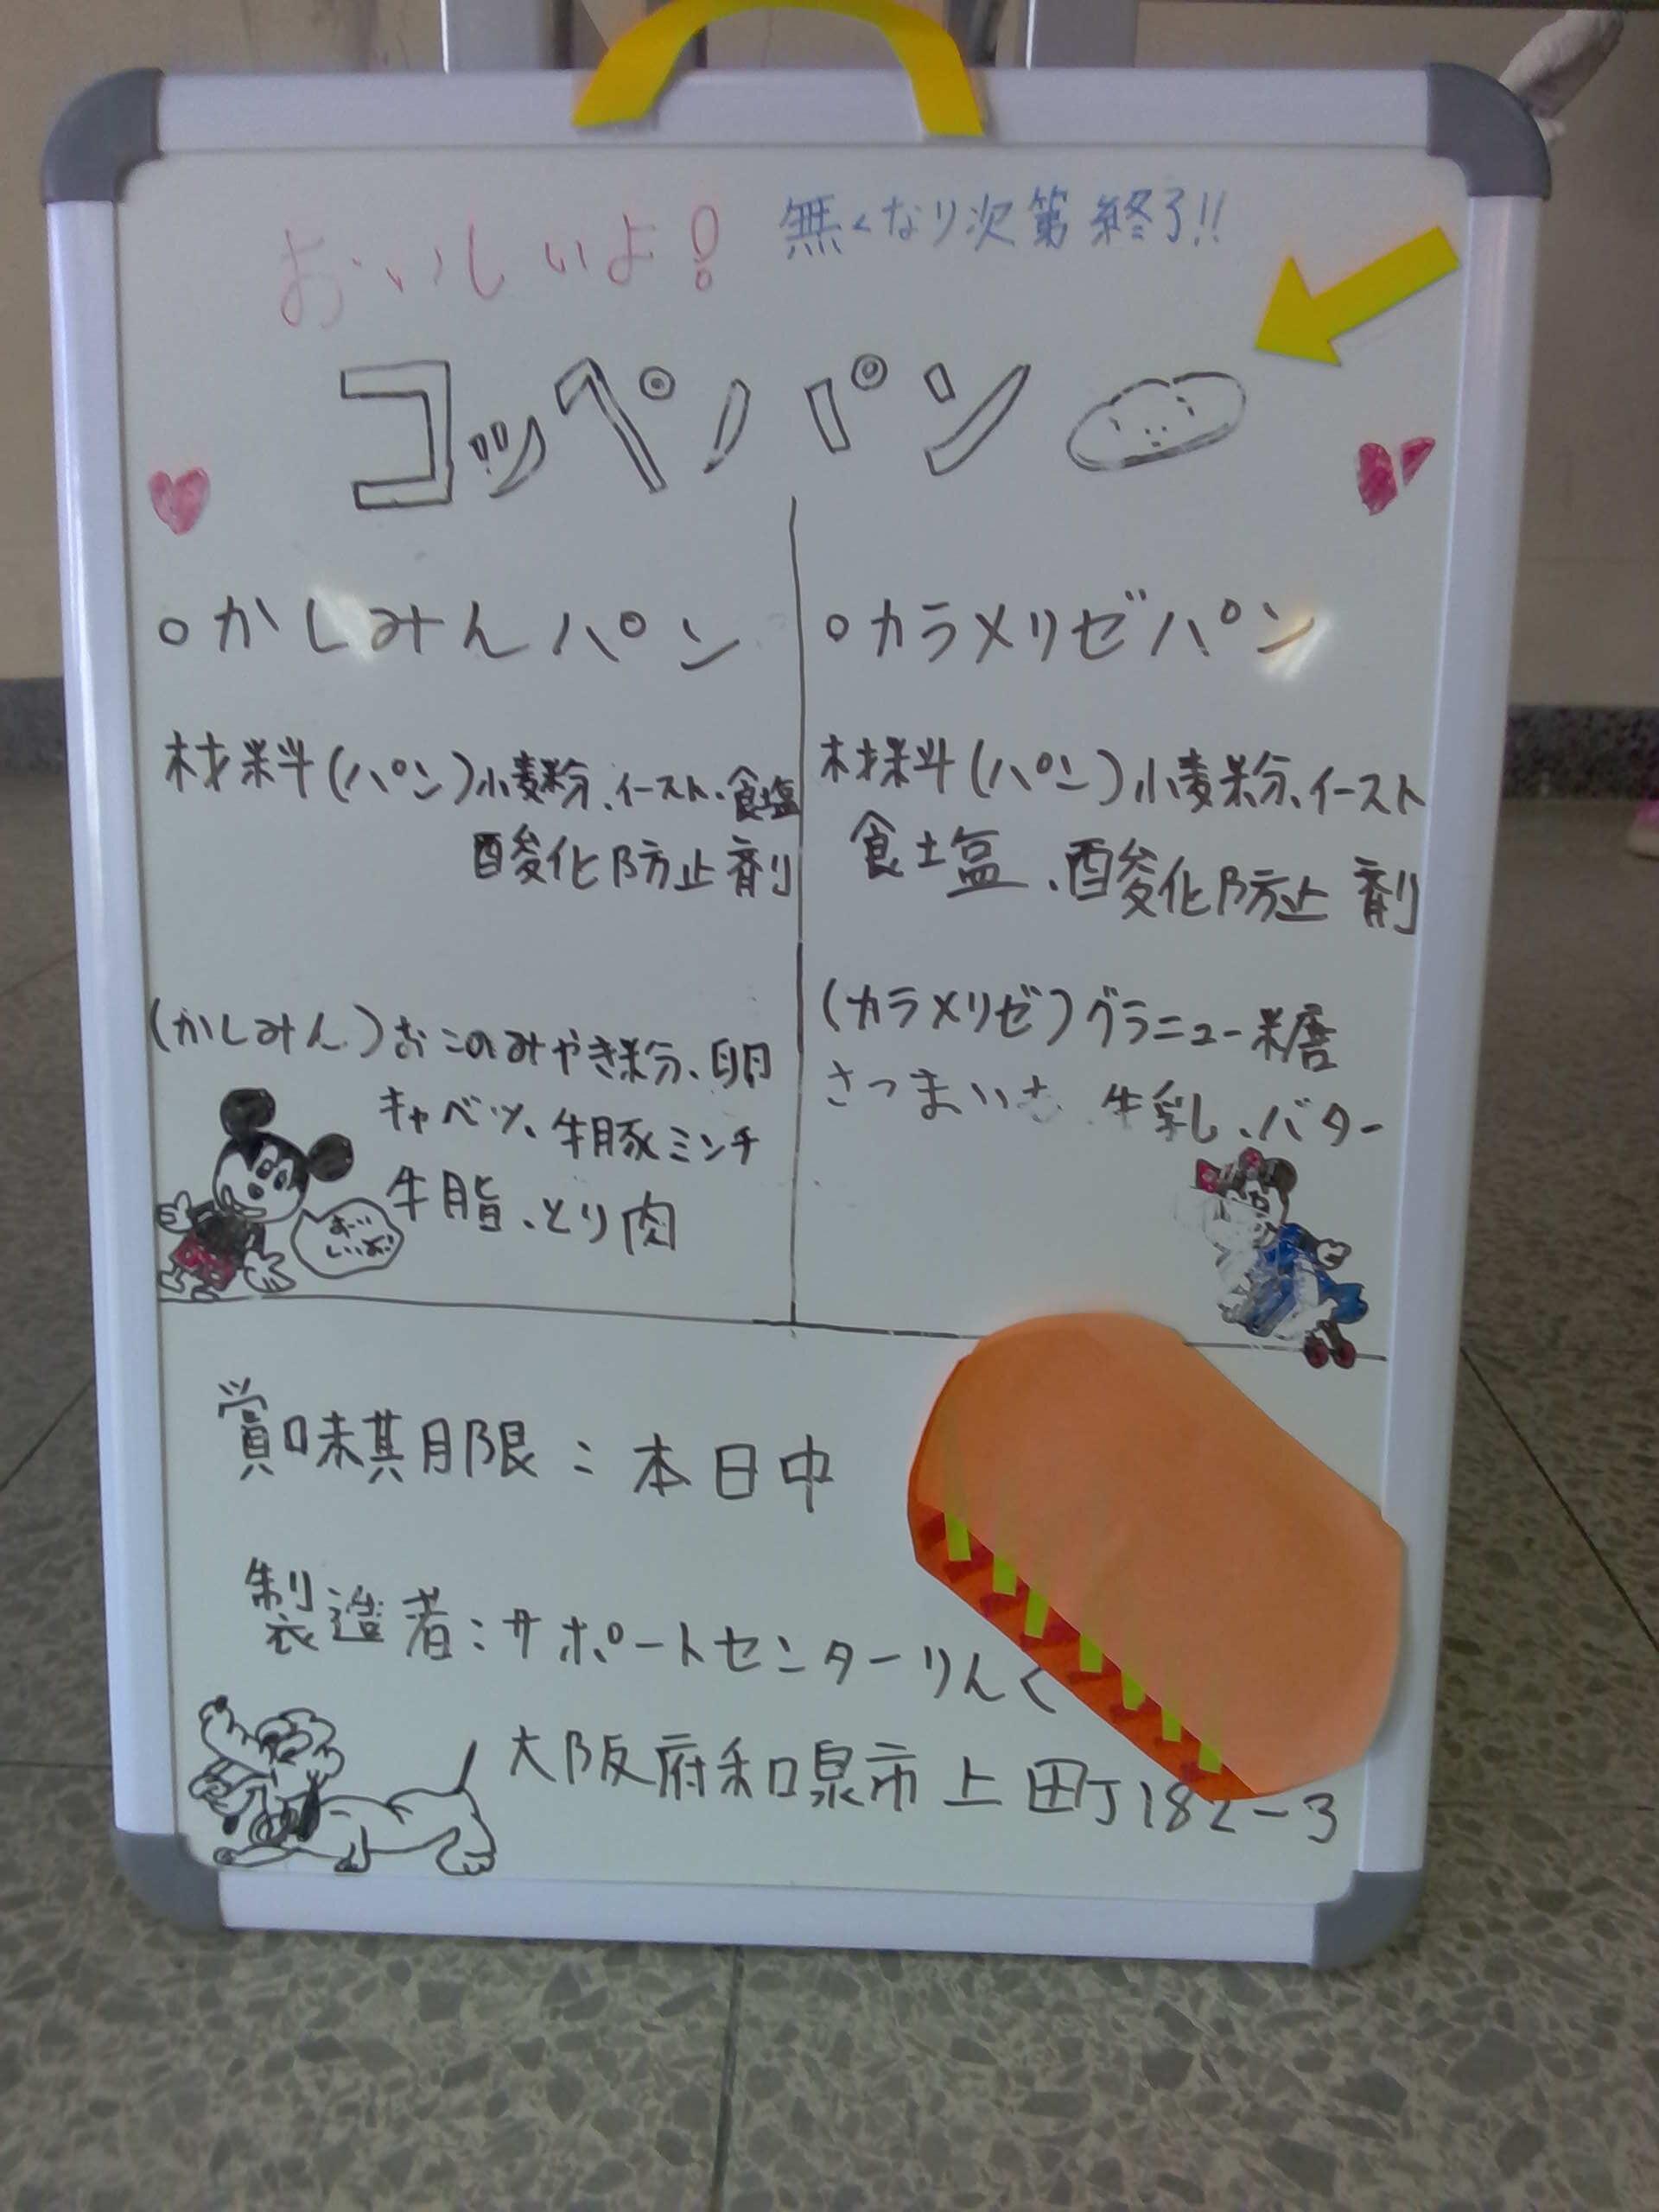 おいしいよ!
無くなり次第終了!!
コッペパン
○かしみんパン
材料(パン)小麦粉、イースト、食塩
酸化防止剤
(かしみん)おこのみやき粉、卵
キャベツ、牛豚ミンチ
牛脂、とり肉
おい
しいよ!
○カラメリゼパン
材料(パン)小麦粉、イースト
食塩、酸化防止剤
(カラメリゼ)グラニュー糖
さつまいも 牛乳、バター
賞味期限:本日中
製造者:サポートセンターりんく
大阪府和泉市上町182-3